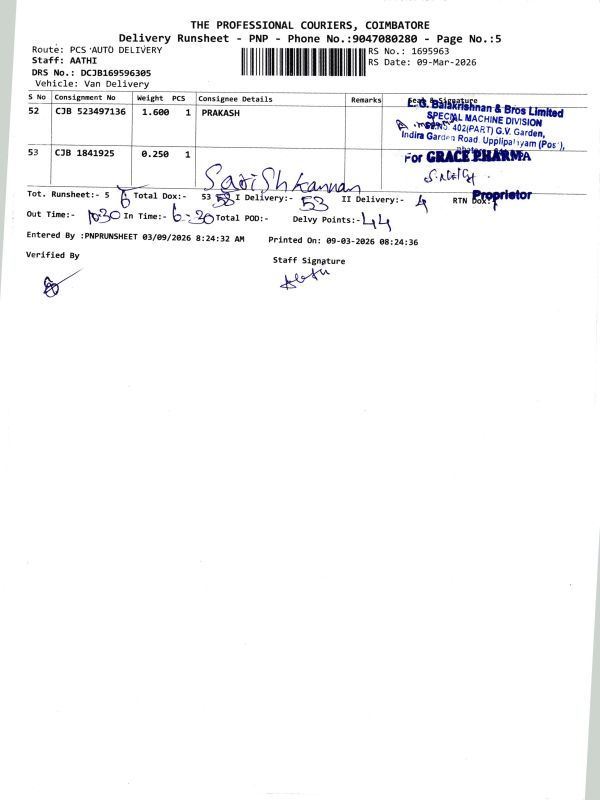 THE PROFESSIONAL COURIERS, COIMBATORE
Delivery Runsheet - PNP - Phone No.:9047080280 - Page No.:5
Route: PCS AUTO DELIVERY
RS No.: 1695963
Staff: AATHI
RS Date: 09-Mar-2026
DRS No.: DCJB169596305
Vehicle: Van Delivery
S No Consignment No Weight PCS Consignee Details Remarks Seal & Signature
52 CJB 523497136 1.600 1 PRAKASH
L. G. Balakrishnan & Bros Limited
SPECIAL MACHINE DIVISION
402(PART) G.V. Garden,
Indira Garden Road, Uppilipalayam (Post),
53 CJB 1841925 0.250 1
For GRACE PHARMA
Satishkannan
Proprietor
Tot. Runsheet:- 5 6 Total Dox:- 53 I Delivery:- 53 II Delivery:- 4 RTN Dox:-
Out Time:- 1030 In Time:- 6-30 Total POD:- Delvy Points:- 44
Entered By :PNPRUNSHEET 03/09/2026 8:24:32 AM Printed On: 09-03-2026 08:24:36
Verified By
Staff Signature